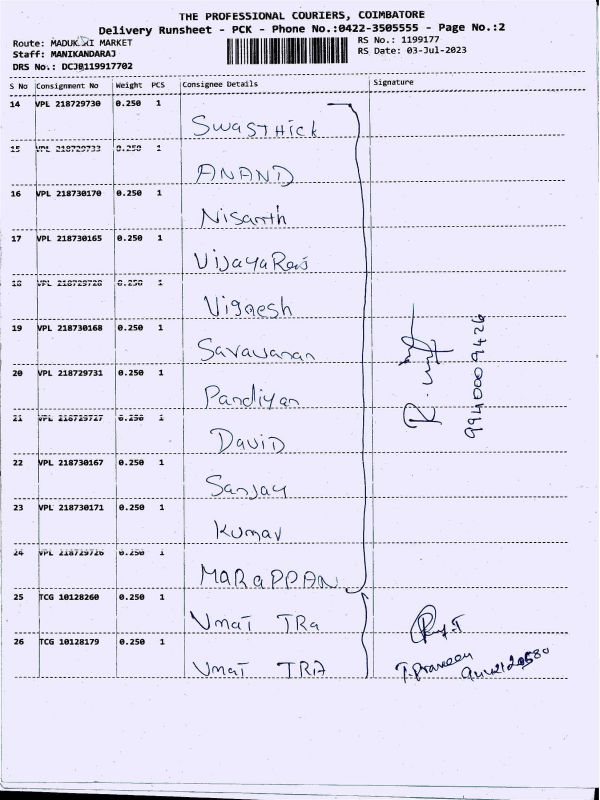 THE PROFESSIONAL COURIERS, COIMBATORE
Delivery Runsheet - PCK - Phone No.:0422-3505555 - Page No.:2
Route: MARKET RS No.: 1199177
Staff: MANIKANDARAJ RS Date: 03-Jul-2023
DRS No.: DCJ0119917702
S No Consignment No Weight PCS Consignee Details Signature
14 VPL 218729730 0.250 1 Swasthick
15 VPL 218729733 0.250 1 ANAND
16 VPL 218730170 0.250 1 Nisanth
17 VPL 218730165 0.250 1
18 VPL 218729728 0.250 1 Vignesh
19 VPL 218730168 0.250 1 Saravanan
20 VPL 218729731 0.250 1 Pandiyan
9940009426
21 VPL 218729727 0.250 1 DAVID
22 VPL 218730167 0.250 1 Sanjay
23 VPL 218730171 0.250 1 Kumar
24 VPL 218729726 0.250 1 MARAPPAN
25 TCG 10128260 0.250 1
26 TCG 10128179 0.250 1
T. Praveen